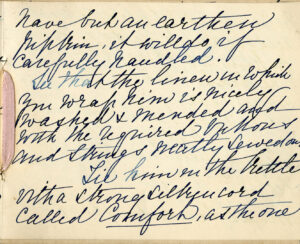 have but an earthen
pipkin, it will do, if
carefully handled.
See that the linen in which
you wrap him is nicely
washed & mended and
with the required buttons
and strings neatly sewed on
Tie him in the Kettle
with a strong silken cord
called Comfort, as the one